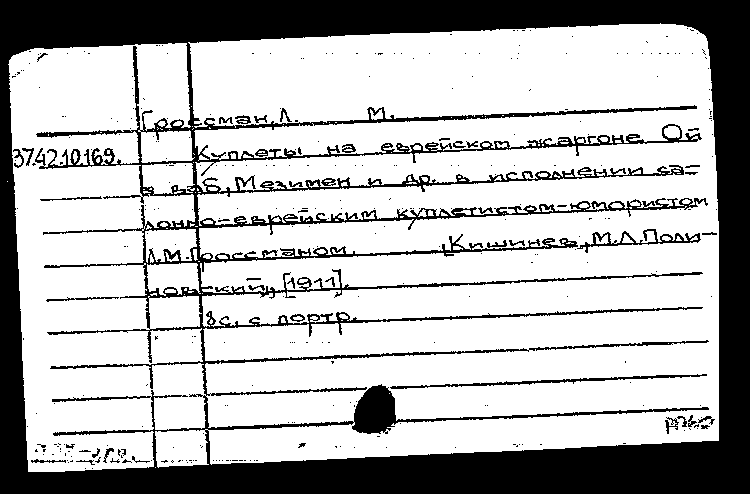 Гроссман, Л. М.
37.42.10.169. Куплеты на еврейском жаргоне. Ой
а ваб, Мезимен и др. в исполнении са-
лонно-еврейским куплетистом-юмористом
Л.М.Гроссманом. [Кишинев, М.Л.Поли-
новский], [1911].
8с. с портр.